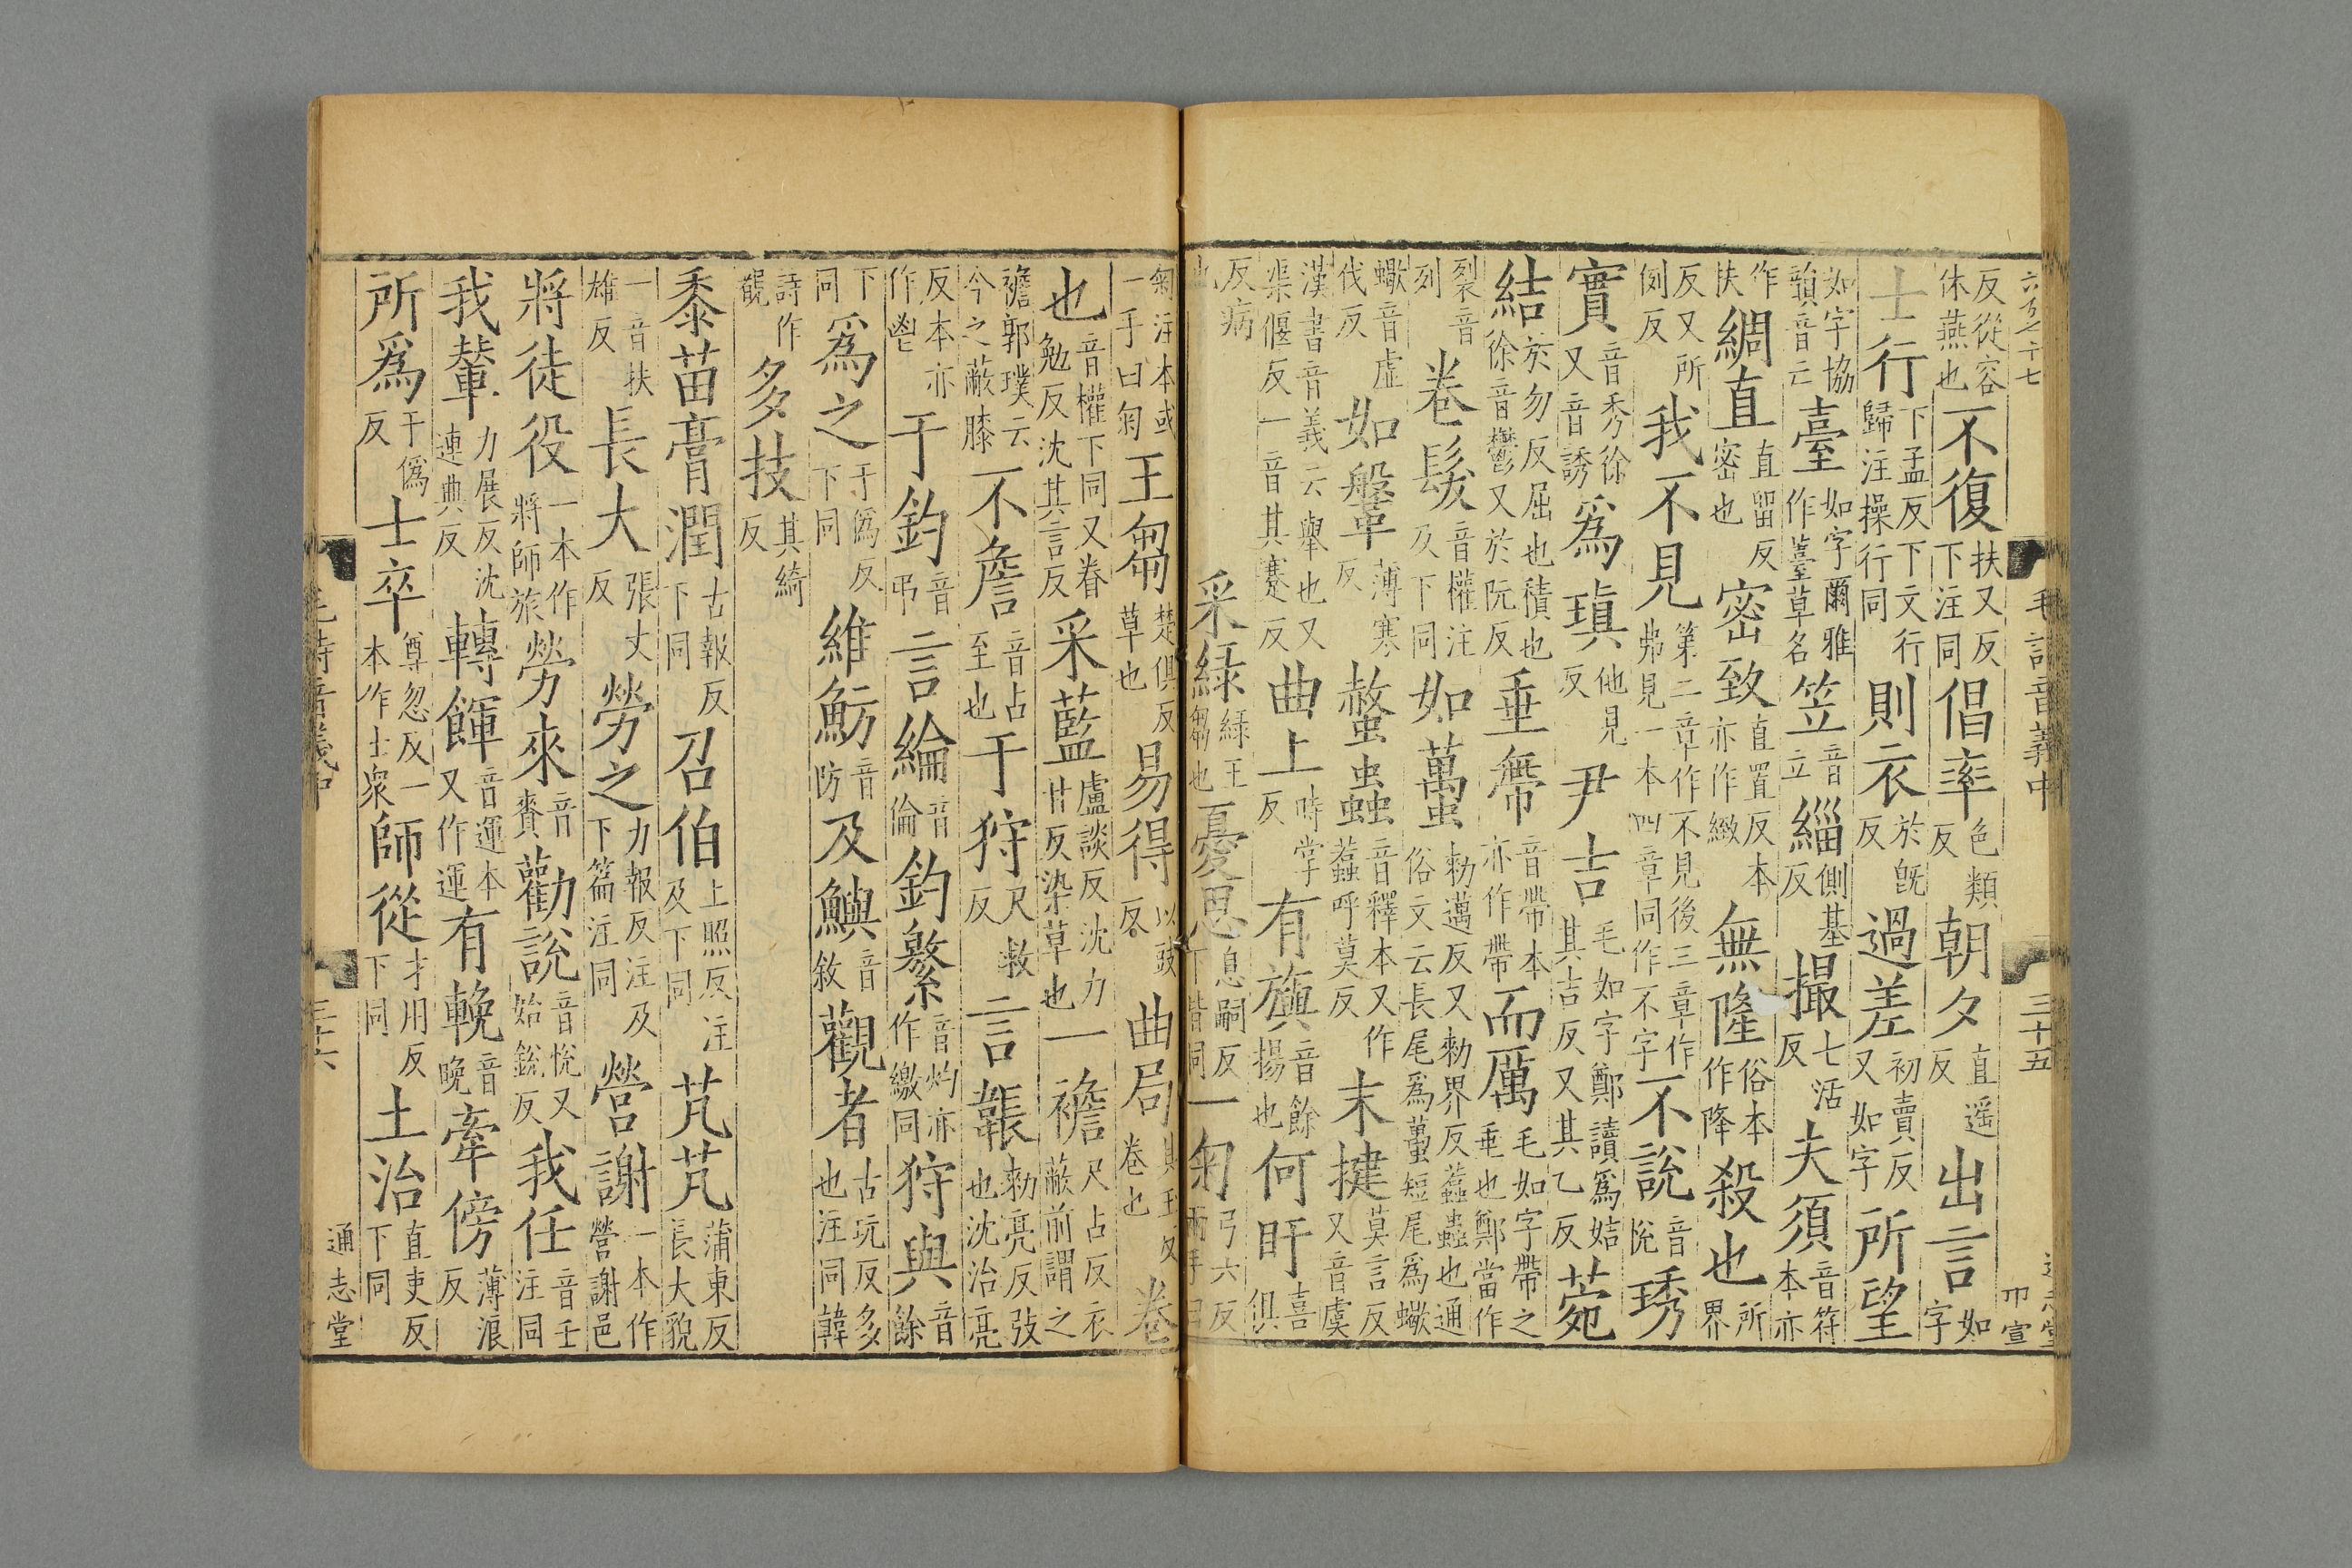 毛詩音義中 三十五
反從容休燕也不復扶又反下注同倡率色類反朝夕直遥反出言如字
士行下孟反下文行歸注操行同則衣於旣反過差初賣反又如字所望
如字協韻音亡臺如字爾雅作薹草名笠音立緇側基反撮七活反夫須音符本亦
作扶綢直直留反密也密致直置反本亦作緻無隆俗本作降殺也所界
反又所例反我不見第二章作不見後三章作弗見一本四章同作不字不說音悅琇
實音秀徐又音誘爲瑱他見反尹吉毛如字鄭讀爲姞其吉反又其乙反菀
結於勿反屈也積也徐音鬱又於阮反垂帶音帶本亦作帶而厲毛如字帶之垂也鄭當作
裂音列卷髮音權注及下同如蠆勑邁反又勑界反蠚蟲也通俗文云長尾爲蠆短尾爲蠍
蠍音虛伐反如鞶薄寒反螫蟲音釋本又作蠚呼莫反末揵莫言反又音虔
漢書音義云舉也又渠偃反一音其蹇反曲上時掌反有旟音餘揚也何盱喜俱
反病也采緑緑王芻也憂思息嗣反下皆同一匊弓六反兩手曰
匊注本或一手曰匊王芻楚俱反草也易得以豉反曲局其玉反卷也卷
也音權下同又眷勉反沈其言反采藍盧談反沈力甘反染草也一襜尺占反衣蔽前謂之
襜郭璞云今之蔽膝不詹音占至也于狩尺救反言韔勑亮反弢也沈治亮
反本亦作鬯于釣音弔言綸音倫釣繳音灼亦作繳同狩與音餘
下同爲之于僞反下同維魴音防及鱮音敘觀者古玩反多也注同韓
詩作覩多技其綺反
黍苗膏潤古報反下同召伯上照反注及下同芃芃蒲東反長大貌
一音扶雄反長大張丈反勞之力報反注及下篇注同營謝一本作營謝邑
將徒役一本作將師旅勞來音賚勸說音悅又始銳反我任音壬注同
我輦力展反沈連典反轉餫音運本又作運有輓音晚牽傍薄浪反
所爲于僞反士卒尊忽反一本作士衆師從才用反下同土治直吏反下同
毛詩音義中 三十六 通志堂